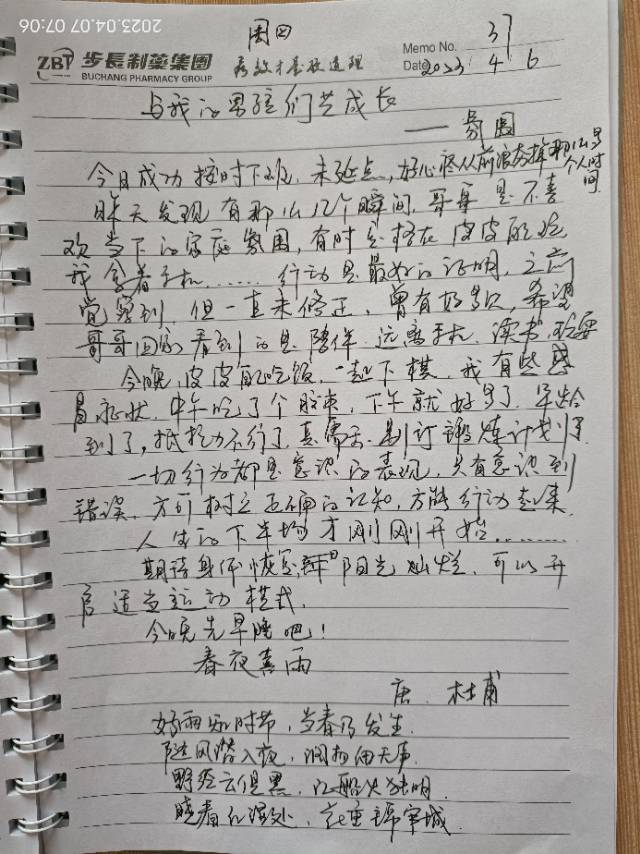 2023.04.07 07:06
周四
ZBT 步長制藥集團
BUCHANG PHARMACY GROUP
Memo No. 37
Date 2023 4 6
与我的男孩们共成长
—— 氛围
今日成功按时下班,未延点,好心疼从前浪费掉那么多
个人时间
昨天发现有那么几个瞬间,哥哥是不喜
欢当下的家庭氛围,有时
我拿着手机……行动是最好的证明,之前
觉察到,但一直未修正,曾有好多次,希望
哥哥回家看到的是陪伴、远离手机、读书、
今晚,皮皮自己吃饭,一起下棋,我有些感
冒症状,中午吃了个胶囊,下午就好多了,年龄
到了,抵抗力不行了,真需要制订锻炼计划了
一切行为都是意识的表现,只有意识到
错误,方可树立正确的认知,方能行动起来
人生的下半场才刚刚开始………
期待身体恢复,阳光灿烂,可以开
启适当运动模式.
今晚先早睡吧!
春夜喜雨
唐. 杜甫
好雨知时节,当春乃发生.
随风潜入夜,润物细无声.
野径云俱黑,江船火独明.
晓看红湿处,花重锦官城.